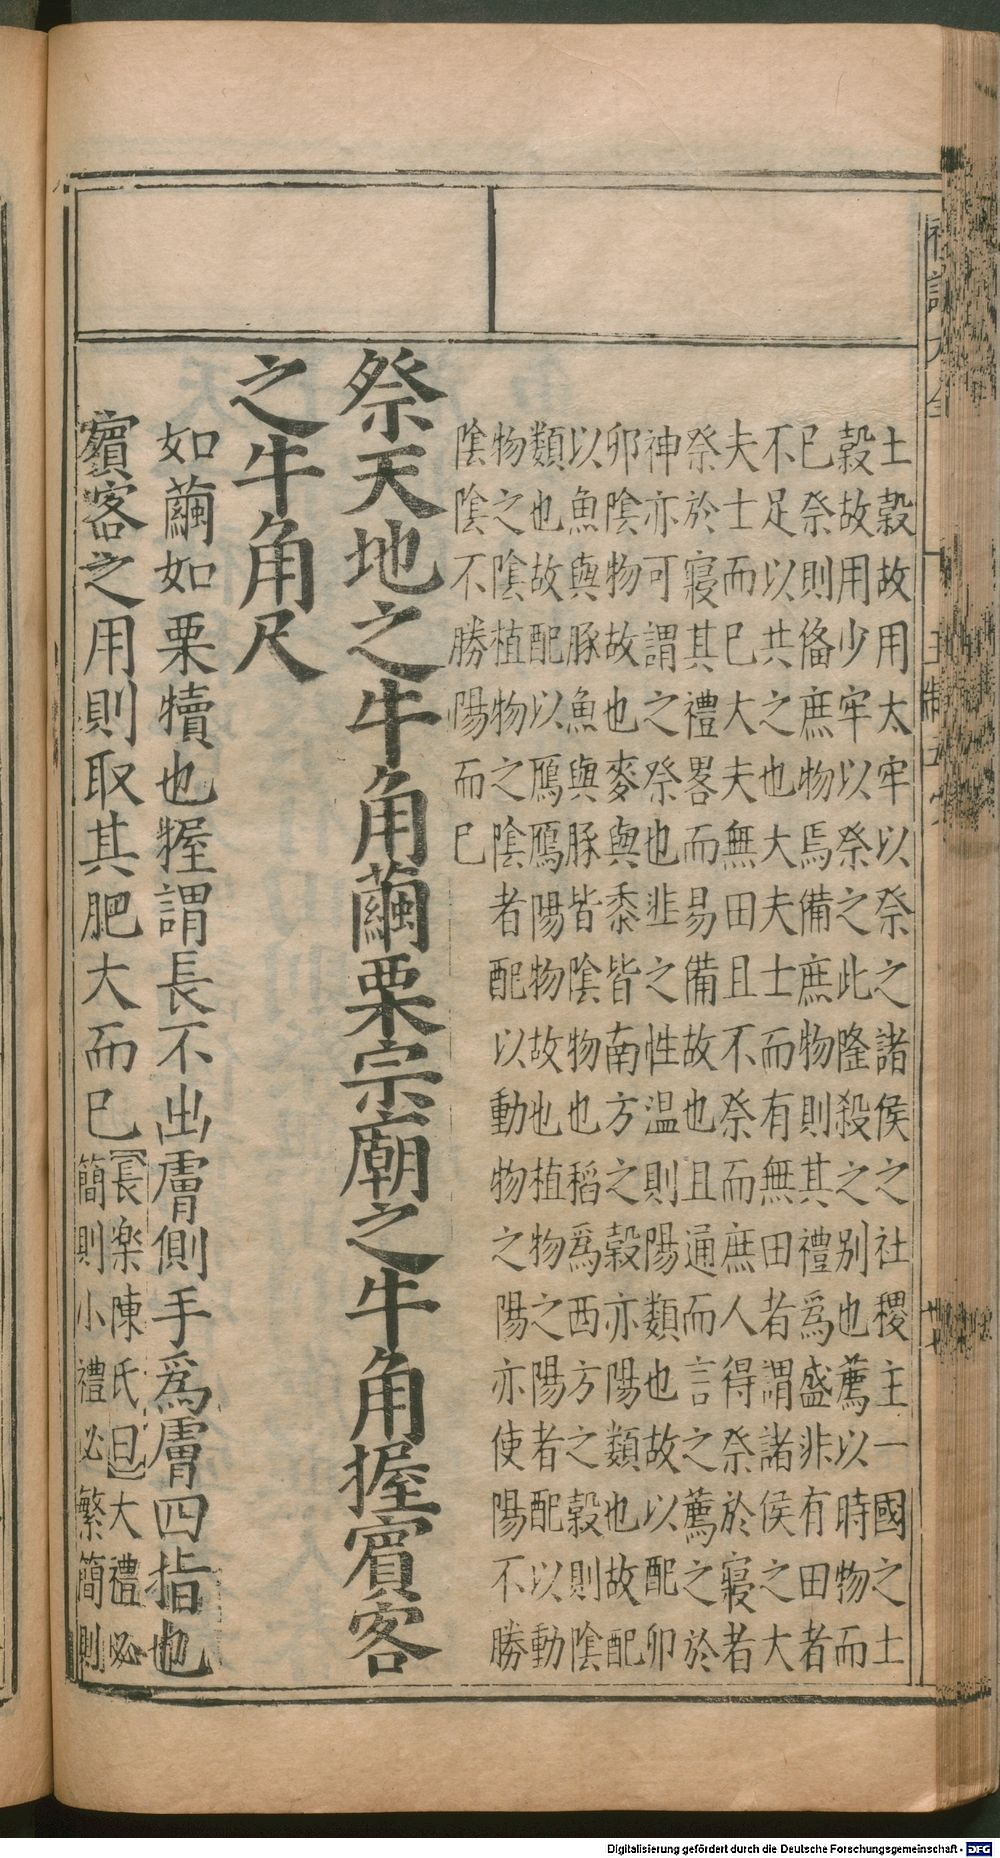 土穀故用太牢以祭之諸侯之社稷主一國之土
穀故用少牢以祭之此隆殺之別也薦以時物而
已祭則俻庶物焉備庶物則其禮為盛非有田者
不足以共之也大夫士而有無田者謂諸侯之大
夫士而已大夫無田且不祭而庶人得祭於寢者
祭於寢其禮畧而易備故也且通而言之薦之於
神亦可謂之祭也韭之性温則陽類也故以配卯
卵陰物故也麥與黍皆南方之穀亦陽類也故配
以魚與豚魚與豚皆陰物也稻為西方之穀則陰
類也故配以鴈鴈陽物故也植物之陽者配以動
物之陰植物之陰者配以動物之陽亦使陽不勝
陰陰不勝陽而已
祭天地之牛角繭栗宗廟之牛角握賓客
之牛角尺
如繭如栗犢也握謂長不出膚側手爲膚四指也
賓客之用則取其肥大而已
長楽陳氏曰大禮必
簡則小禮必繁簡則
Digitalisierung gefördert durch die Deutsche Forschungsgemeinschaft - DFG